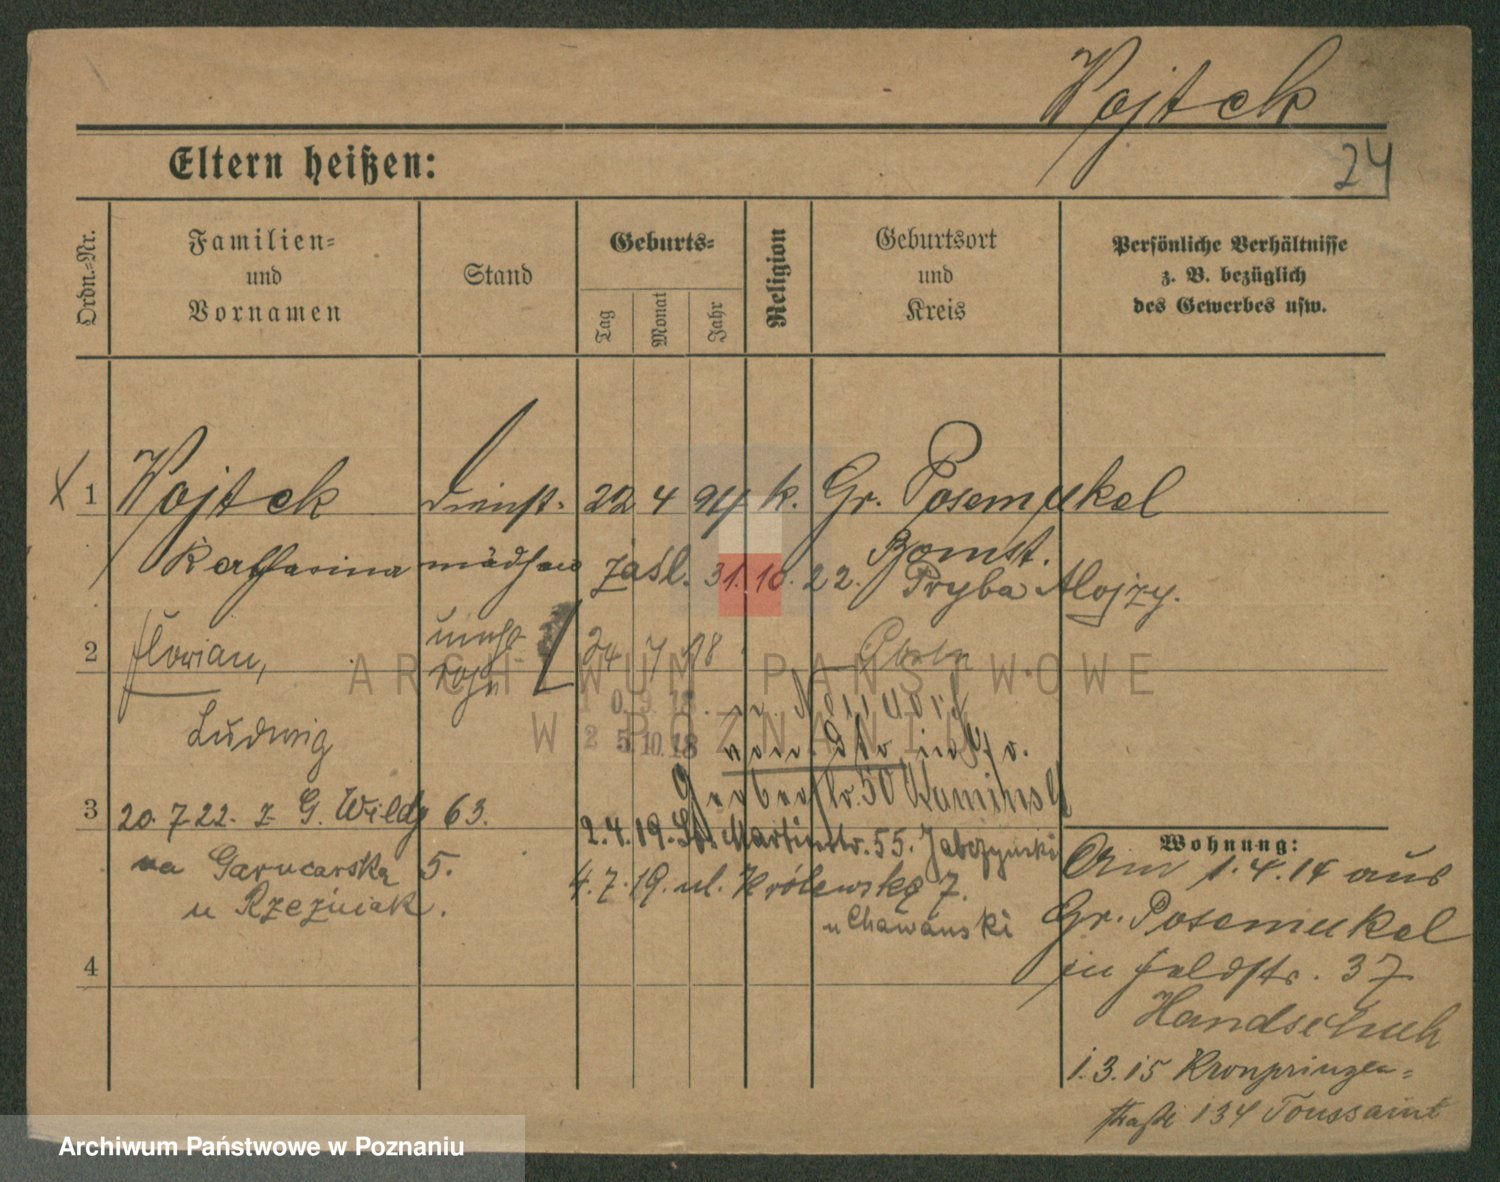 Wojtek
24
Eltern heißen:
Ordn.-Nr.
Familien-
und
Vornamen
Stand
Geburts-
Tag
Monat
Jahr
Religion
Geburtsort
und
Kreis
Persönliche Verhältnisse
z. B. bezüglich
des Gewerbes usw.
1 Wojtek Dienst- 22 4 94 k. Gr. Posemukel
Katharina mädchen Bomst.
zaśl. 31. 10. 22. Pryba Alojzy.
2 Florian, unehe 24 7 18 Posen
10. 9. 18
Ludwig
25. 10. 18
Gerberstr. 50 Kaminski
3 20. 7 22. z G. Wildy 63.
2. 4. 19. St. Martinstr. 55. Jabczynski
na Garncarska 5.
4. 7. 19. ul. Królewska 7.
u Rzeźniak.
u Chawanski
4
Wohnung:
Am 1. 4. 14 aus
Gr. Posemukel
in Feldstr. 37
Handschuh
1. 3. 15 Kronprinzen-
straße 134 Toussaint
ARCHIWUM PAŃSTWOWE
W POZNANIU
Archiwum Państwowe w Poznaniu